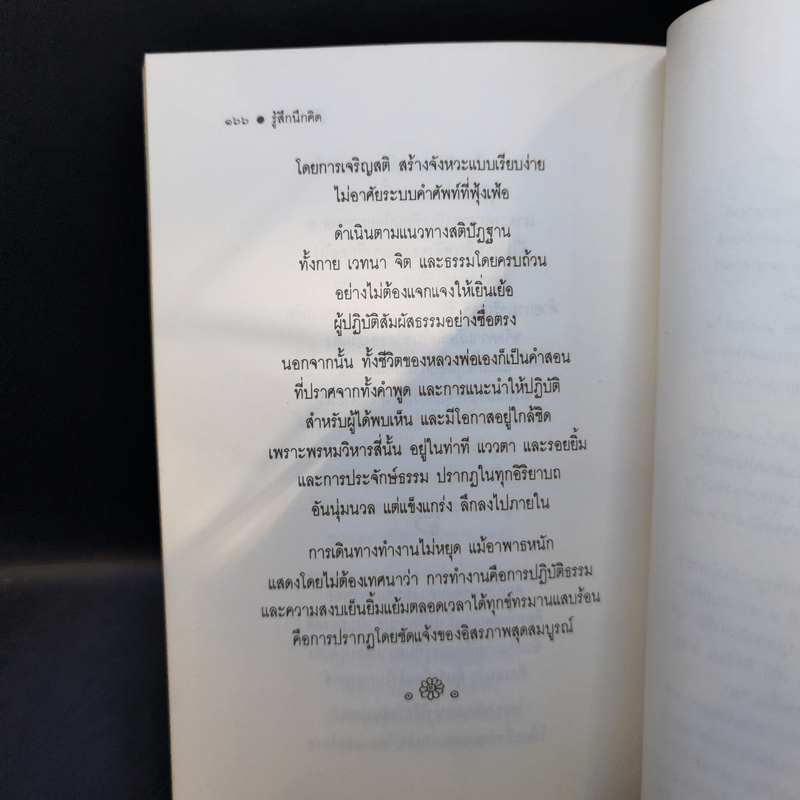 ๑๖๖ ● รู้สึกนึกคิด
โดยการเจริญสติ สร้างจังหวะแบบเรียบง่าย
ไม่อาศัยระบบคำศัพท์ที่ฟุ้งเฟ้อ
ดำเนินตามแนวทางสติปัฏฐาน
ทั้งกาย เวทนา จิต และธรรมโดยครบถ้วน
อย่างไม่ต้องแจกแจงให้เยิ่นเย้อ
ผู้ปฏิบัติสัมผัสธรรมอย่างซื่อตรง
นอกจากนั้น ทั้งชีวิตของหลวงพ่อเองก็เป็นคำสอน
ที่ปราศจากทั้งคำพูด และการแนะนำให้ปฏิบัติ
สำหรับผู้ได้พบเห็น และมีโอกาสอยู่ใกล้ชิด
เพราะพรหมวิหารสี่นั้น อยู่ในท่าที แววตา และรอยยิ้ม
และการประจักษ์ธรรม ปรากฏในทุกอิริยาบถ
อันนุ่มนวล แต่แข็งแกร่ง ลึกลงไปภายใน
การเดินทางทำงานไม่หยุด แม้อาพาธหนัก
แสดงโดยไม่ต้องเทศนาว่า การทำงานคือการปฏิบัติธรรม
และความสงบเย็นยิ้มแย้มตลอดเวลาใต้ทุกข์ทรมานแสบร้อน
คือการปรากฏโดยชัดแจ้งของอิสรภาพสุดสมบูรณ์